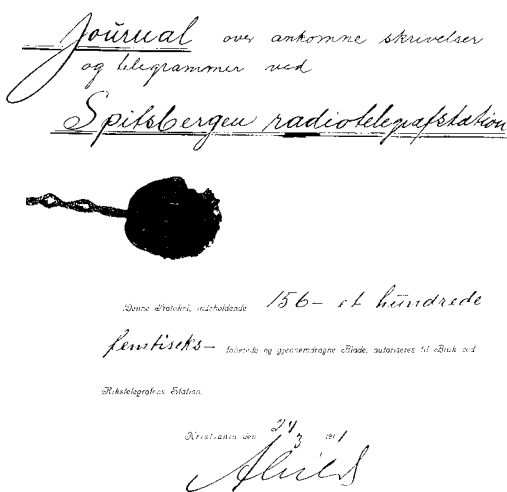 Journal over ankomne skrivelser
og telegrammer ved
Spitsbergen radiotelegrafstation
Denne Protokol, indeholdende 156 — et hundrede
femtiseks — folierede og gjennemdragne Blade, autoriseres til Bruk ved
Rikstelegrafens Station.
Kristiania den 24/3 1911